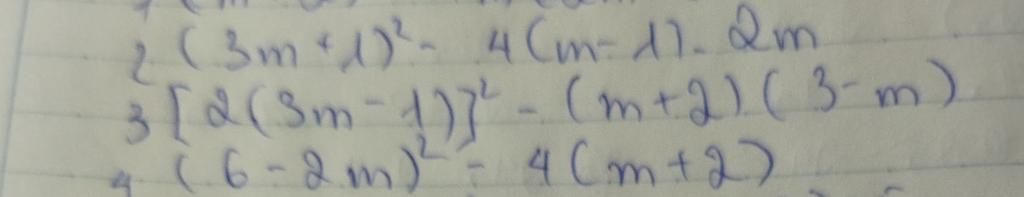 2 (3m + 1)² - 4(m - 1). 2m
3 [2(3m - 1)]² - (m + 2)(3 - m)
4 (6 - 2m)² - 4(m + 2)